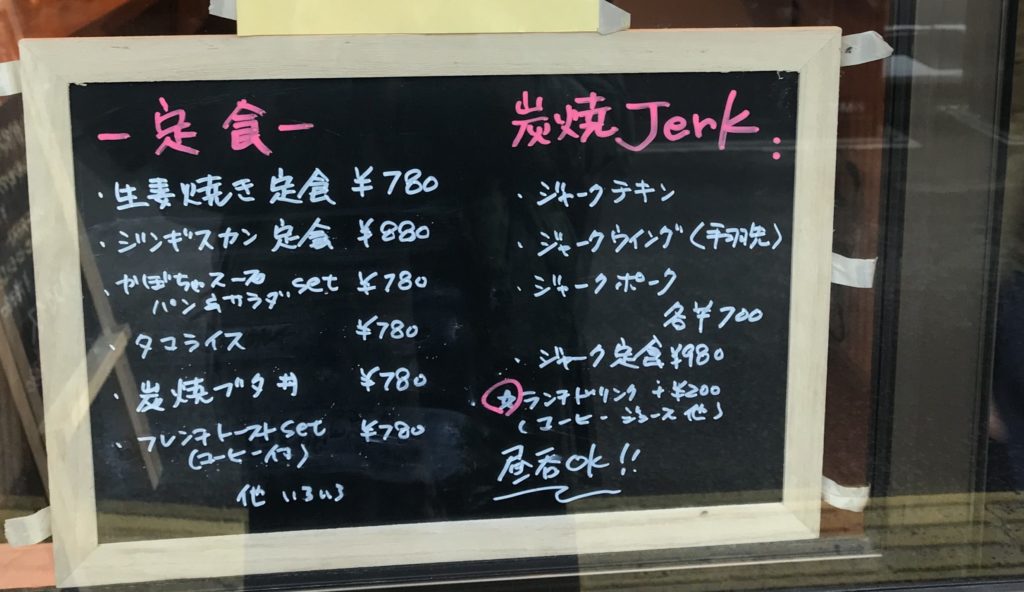 ー定食ー
・生姜焼き定食 ¥780
・ジンギスカン定食 ¥880
・かぼちゃスープset ¥780
パン&サラダ
・タコライス ¥780
・炭焼ブタ丼 ¥780
・フレンチトーストset ¥780
(コーヒー付)
他 いろいろ
炭焼Jerk:
・ジャークチキン
・ジャークウイング(手羽先)
・ジャークポーク
各¥700
・ジャーク定食¥980
☆ランチドリンク +¥200
(コーヒー ジュース 他)
昼呑ok!!